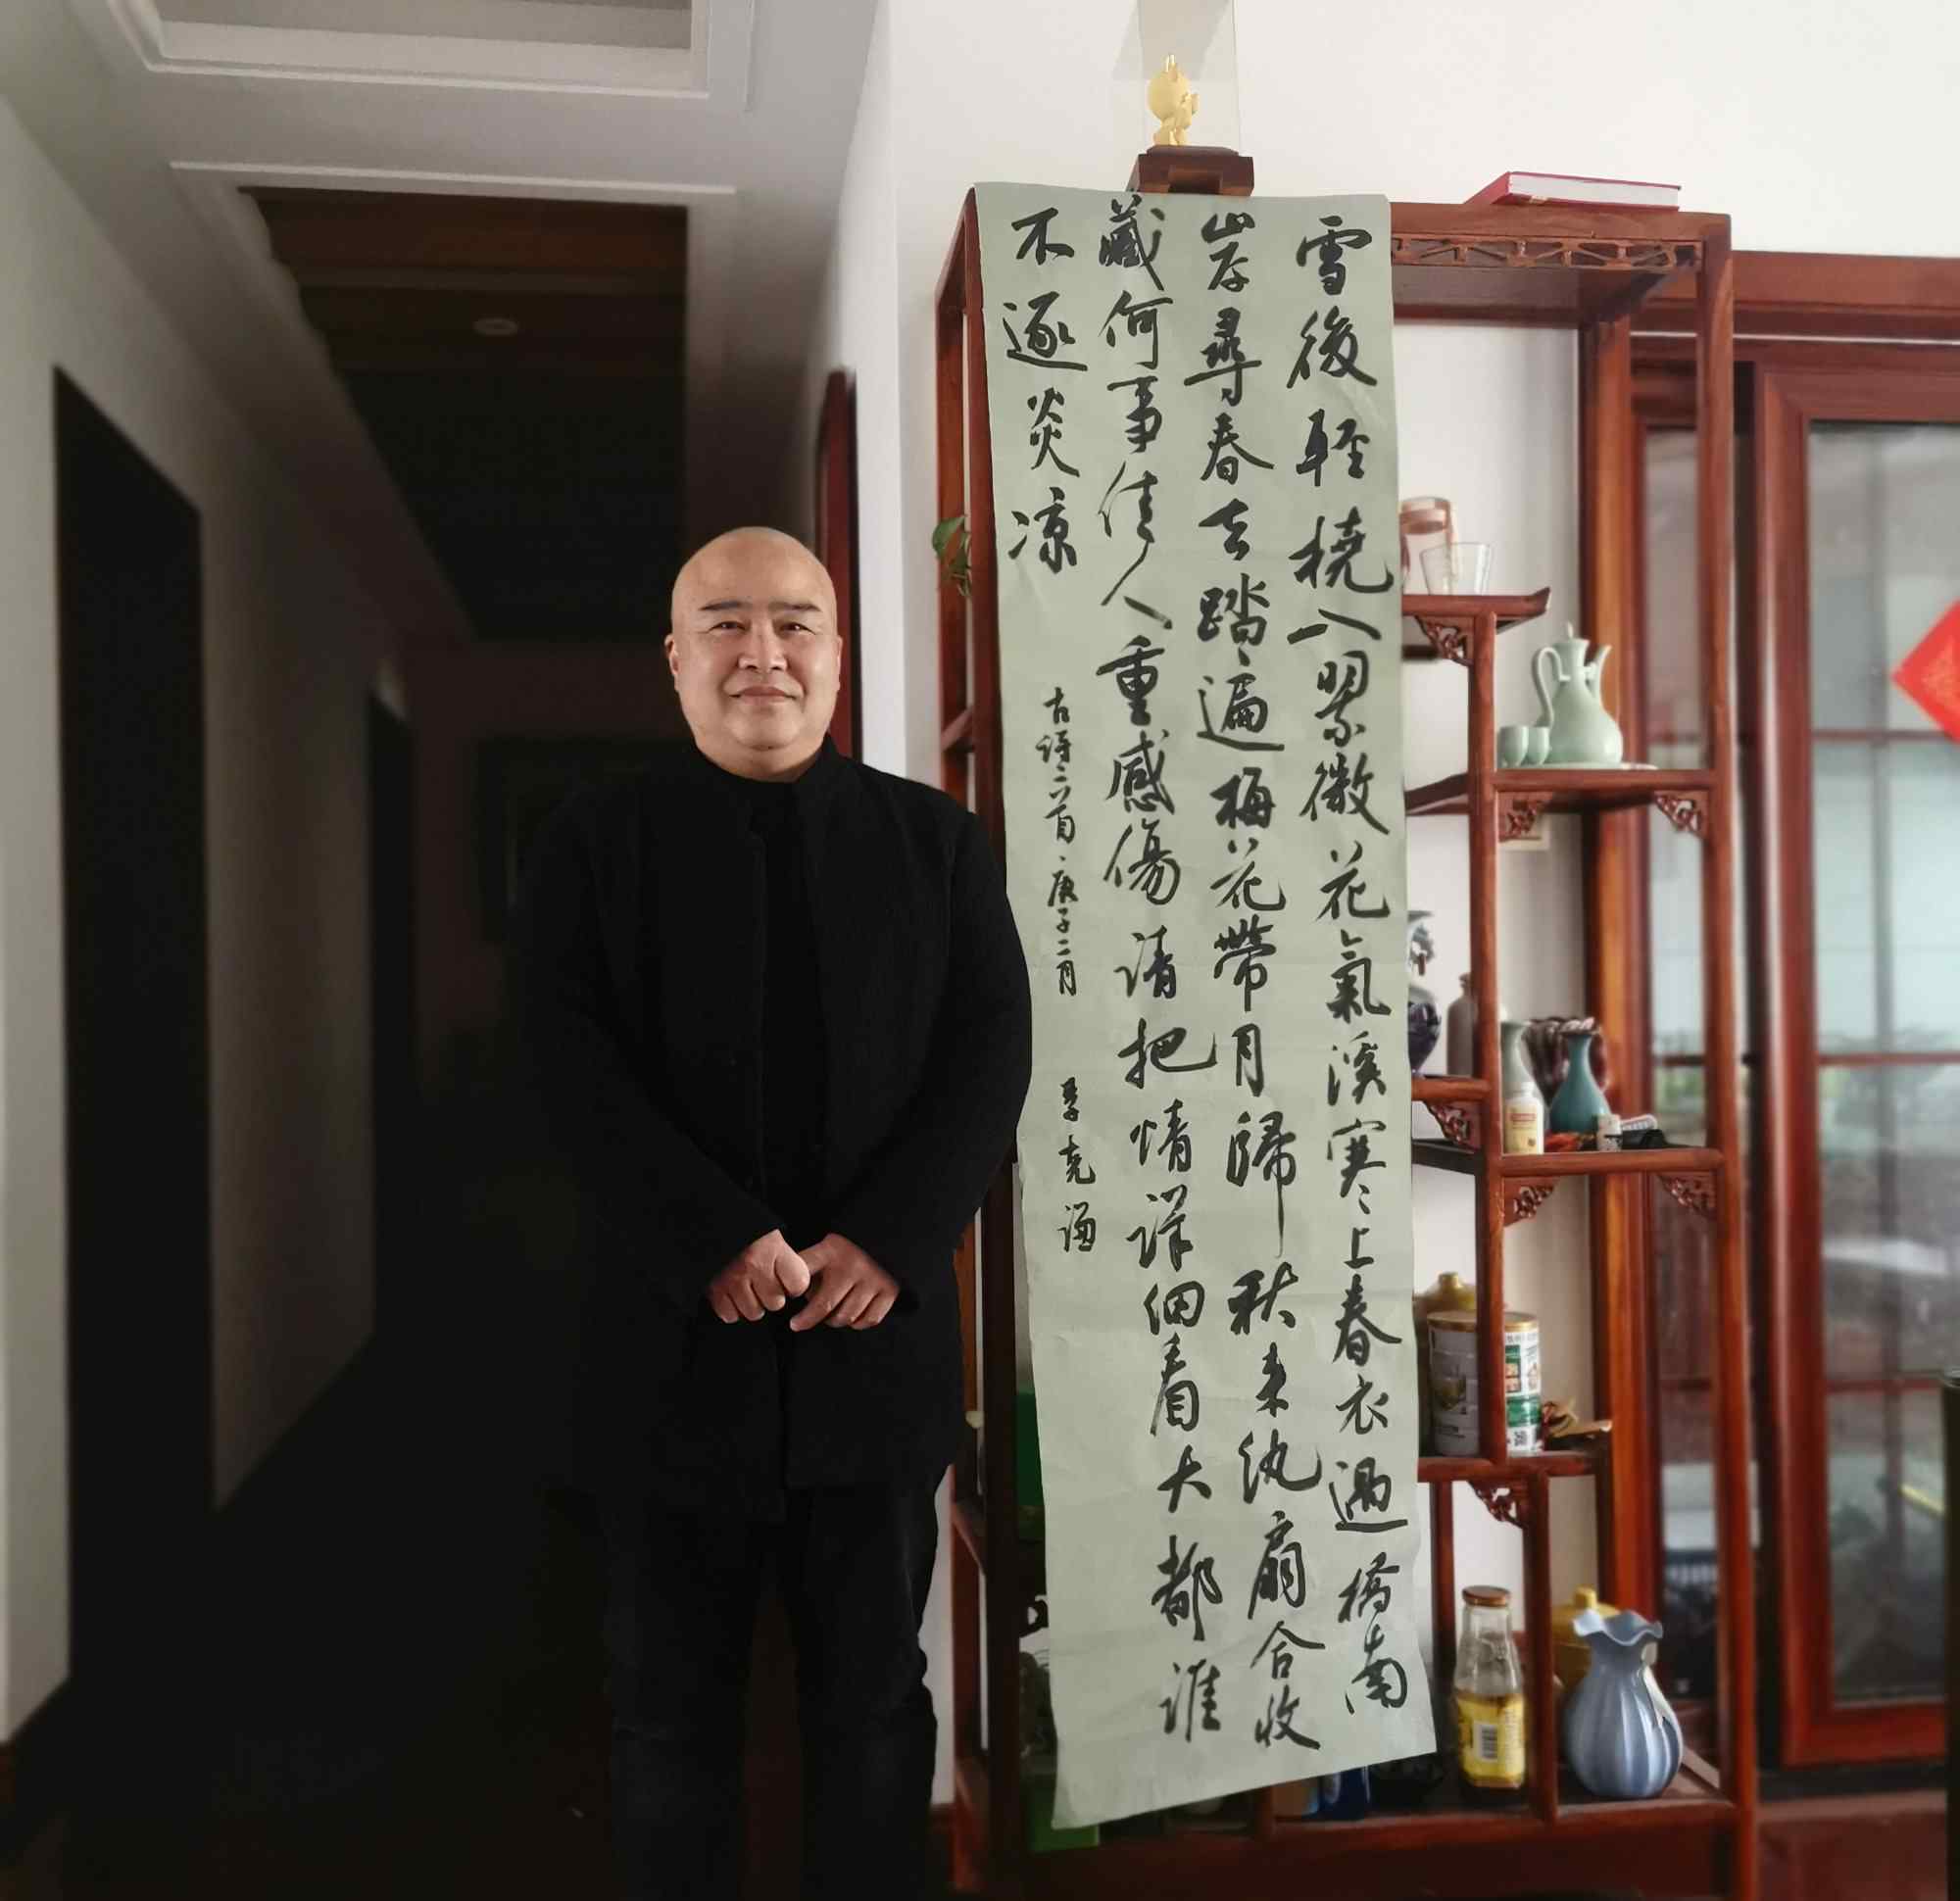 雪後輕橈入翠微花氣溪寒上春衣過橋南
岸尋春去踏遍梅花帶月歸秋來紈扇合收
藏何事佳人重感傷請把情詳細看大都誰
不逐炎凉
古詩二首 庚子二月